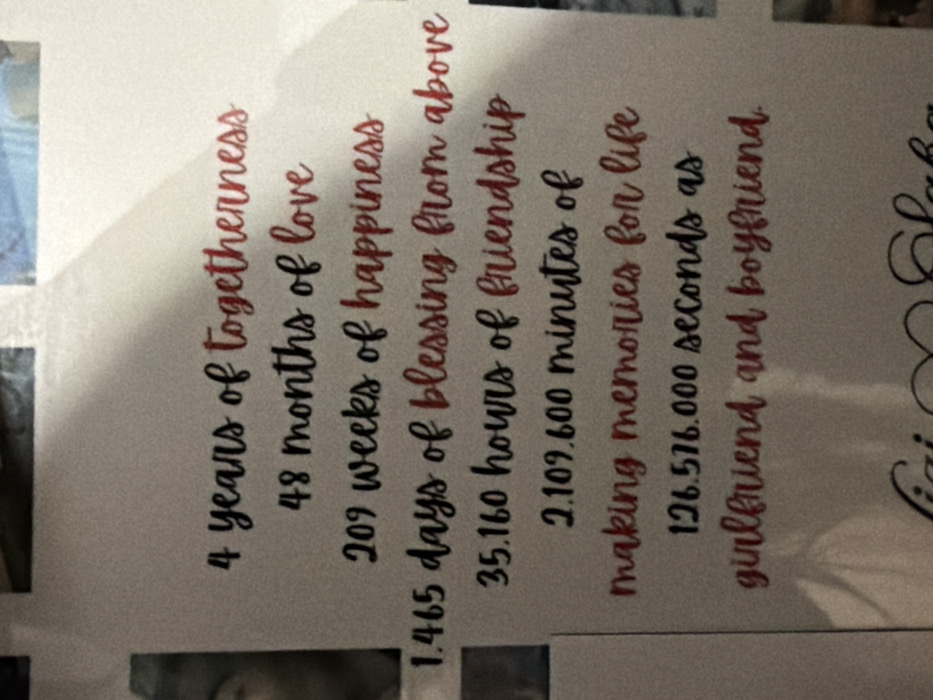 4 years of togetherness
48 months of love
209 weeks of happiness
1.465 days of blessing from above
35.160 hours of friendship
2.109.600 minutes of
making memories for life
126.576.000 seconds as
girlfriend and boyfriend.